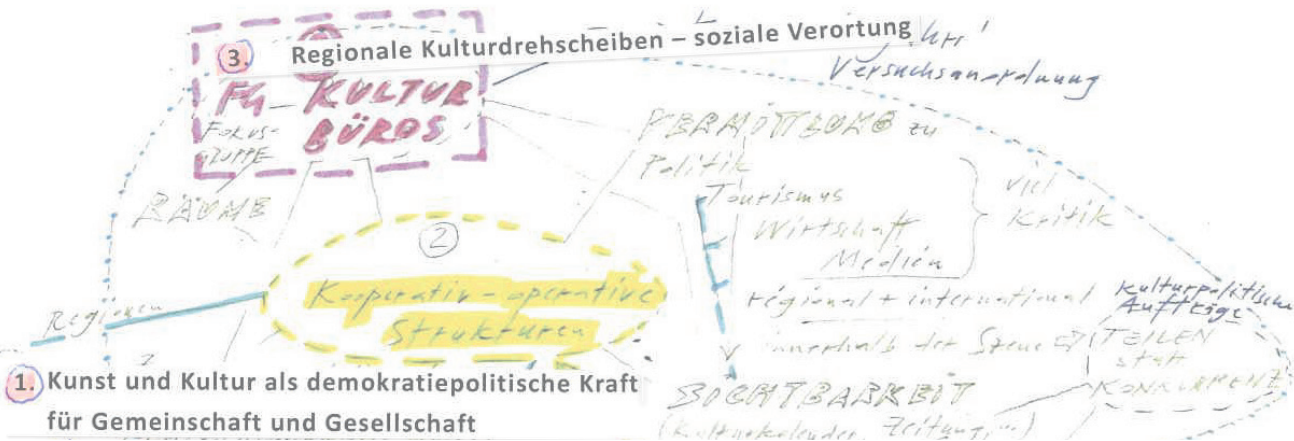 3. Regionale Kulturdrehscheiben – soziale Verortung
Versuchsanordnung
FG – KULTUR
BÜROS
FOKUS-
GRUPPE
RÄUME
VERMITTLUNG zu
Politik
Tourismus
Wirtschaft
Medien
viel
Kritik
2
Kooperativ-operative
Strukturen
Regionen
regional + international
innerhalb der Szene
kulturpolitische
Aufträge
TEILEN
statt
KONKURRENZ
1. Kunst und Kultur als demokratiepolitische Kraft
für Gemeinschaft und Gesellschaft
SICHTBARKEIT
(Kulturkalender, Zeitung, ...)